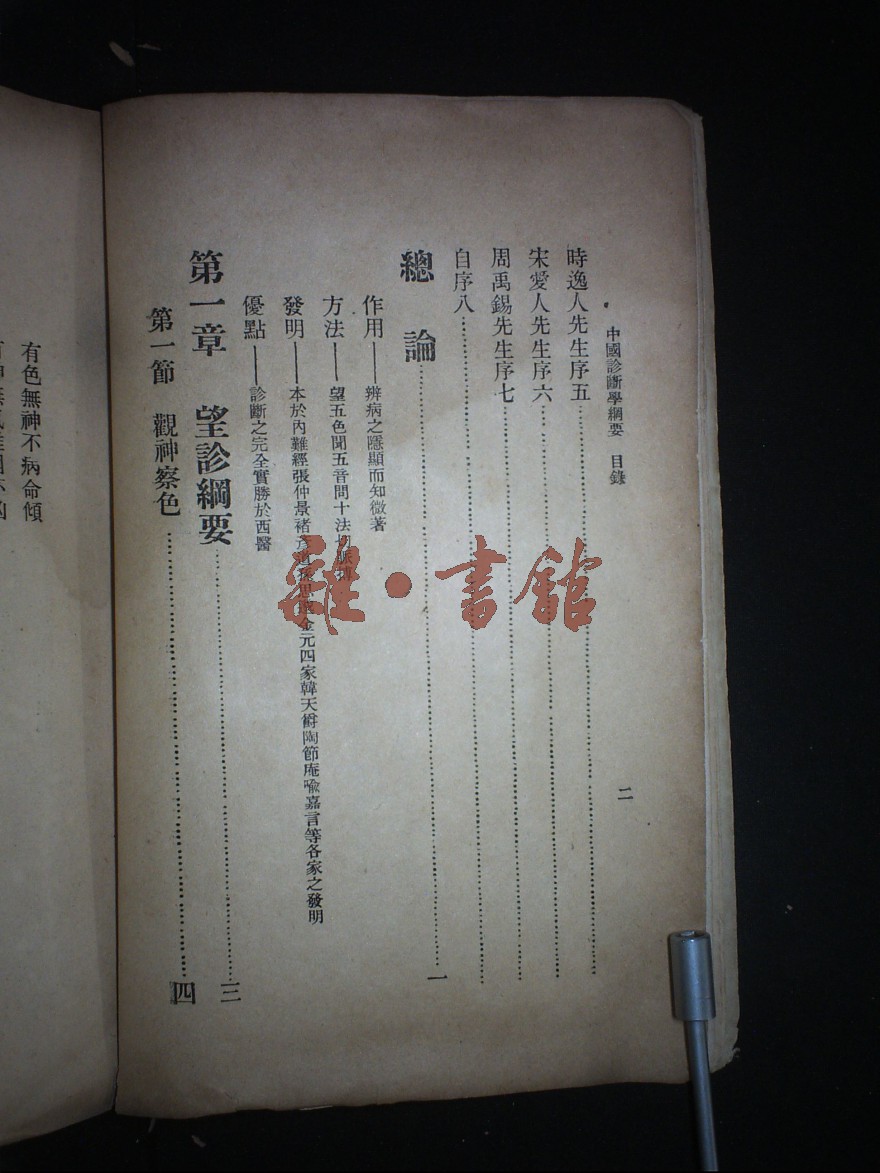 中國診斷學綱要 目錄
二
時逸人先生序五
宋愛人先生序六
周禹錫先生序七
自序八
總論 一
作用——辨病之隱顯而知微著
方法——望五色聞五音問十法
發明——本於內難經張仲景褚 金元四家韓天爵陶節庵喻嘉言等各家之發明
優點——診斷之完全實勝於西醫
第一章 望診綱要 三
第一節 觀神察色 四
有色無神不病命傾
雜·書館